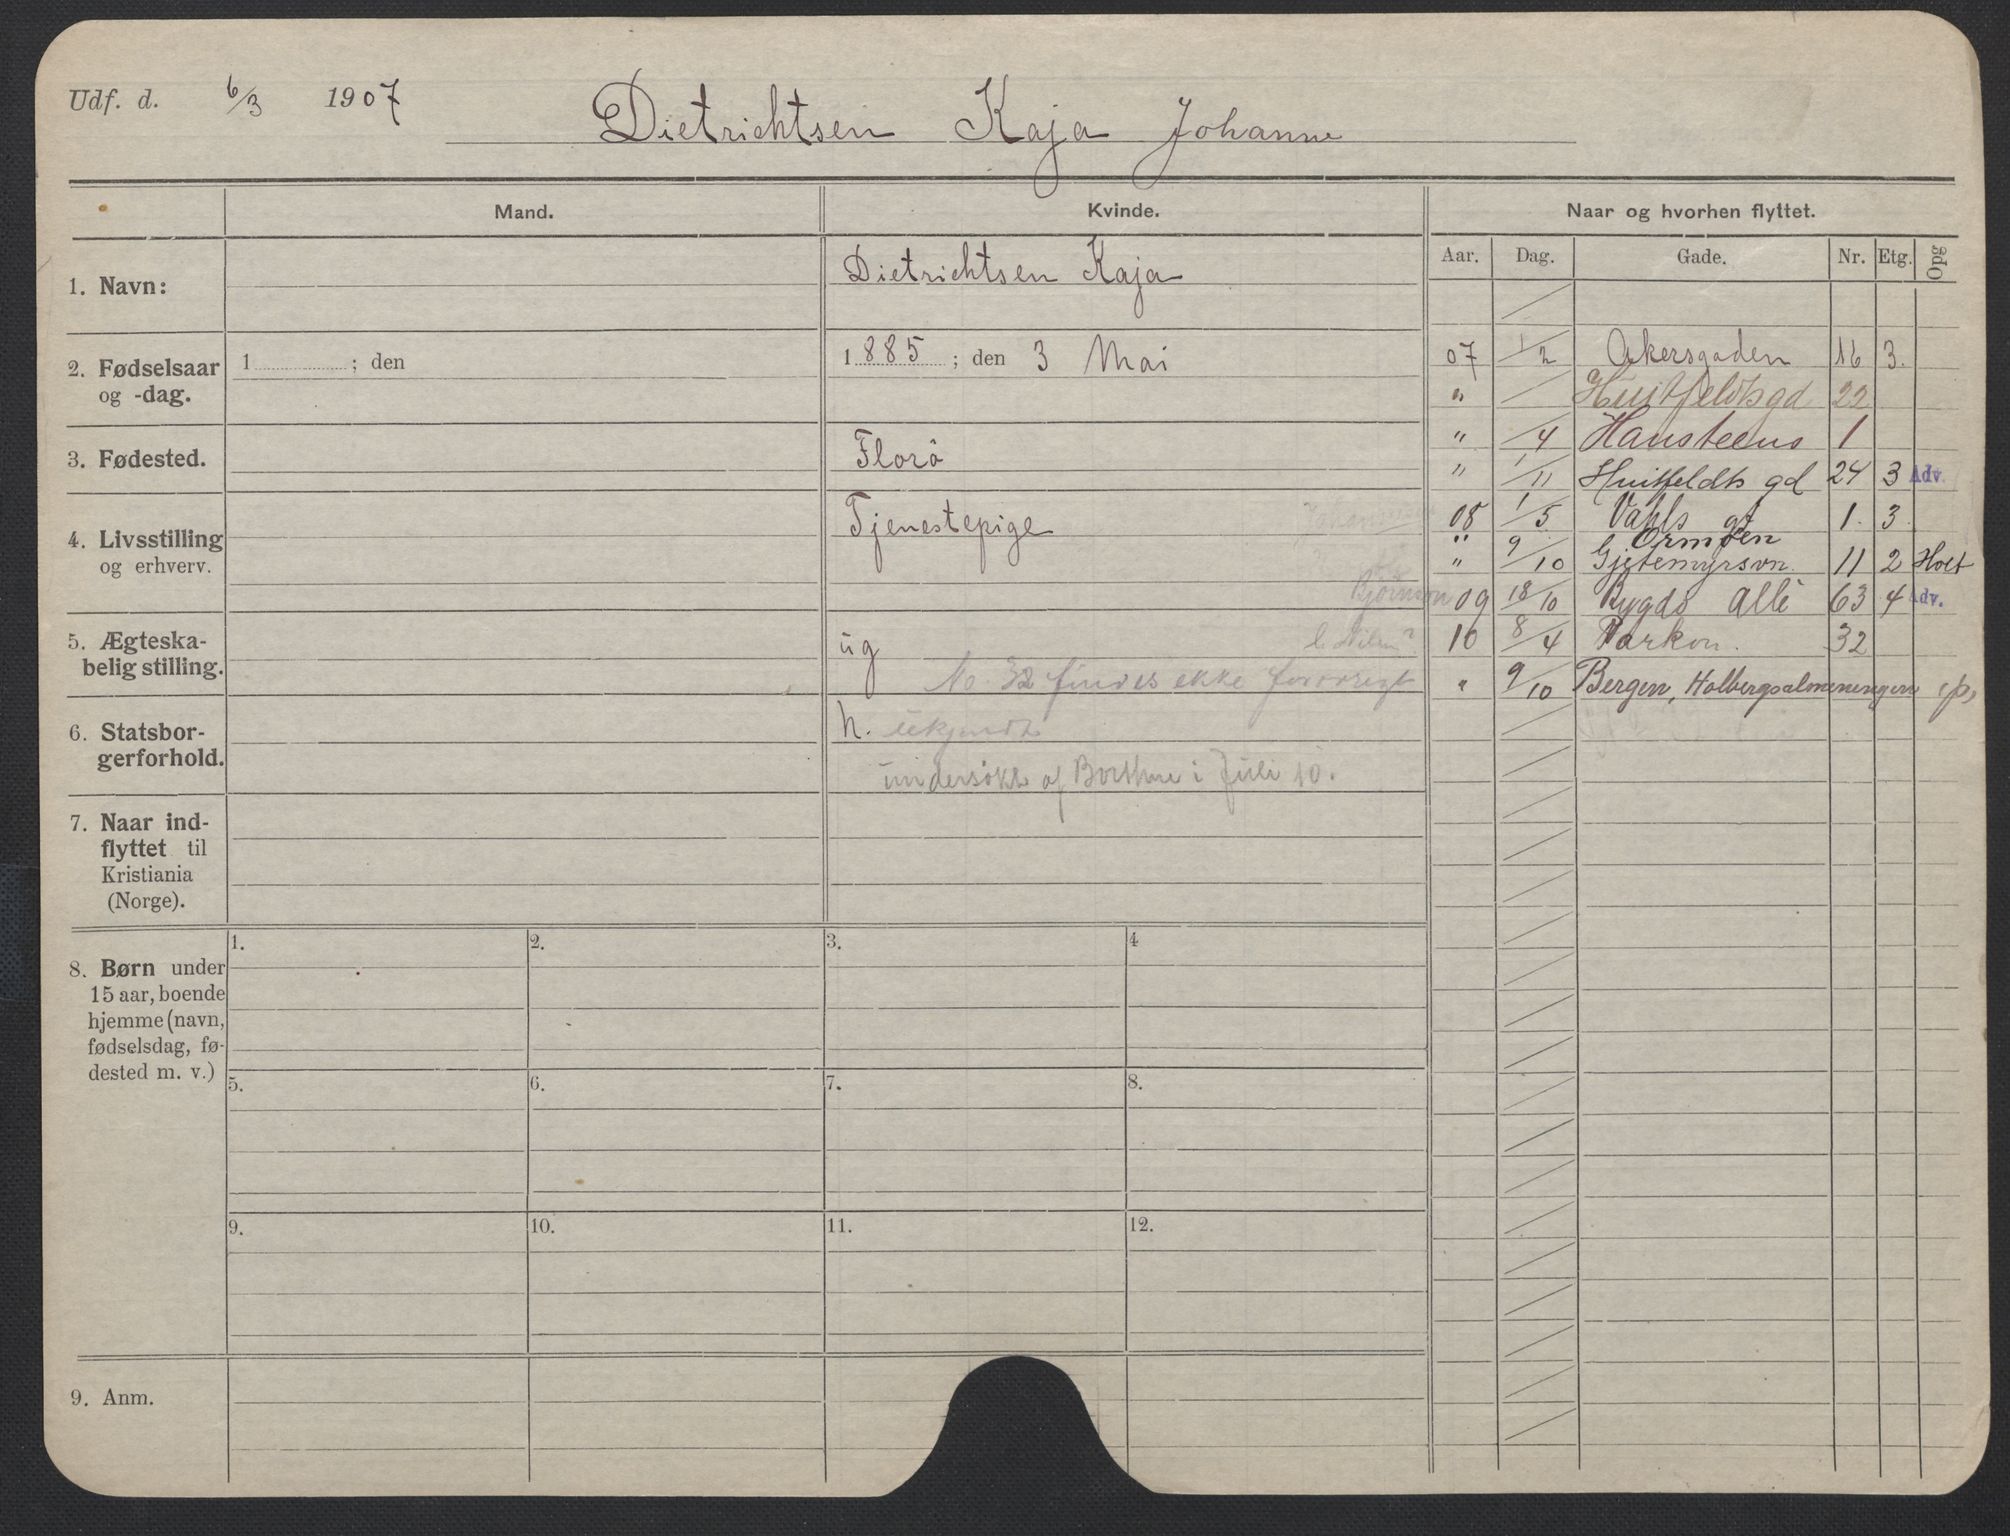 Udf. d. 6/3 1907 Dietrichtsen Kaja Johanne
Mand. Kvinde. Naar og hvorhen flyttet.
Aar. Dag. Gade. Nr. Etg. Opg
1. Navn: Dietrichtsen Kaja
2. Fødselsaar og -dag. 1 ; den 1885 ; den 3 Mai
3. Fødested. Florö
4. Livsstilling og erhverv. Tjenestepige
5. Ægteska-
belig stilling. ug
No. 32 findes ikke forøvrigt
6. Statsbor-
gerforhold. N. ukjendt
undersökt af i Juli 10.
7. Naar ind-
flyttet til
Kristiania
(Norge).
07 1/2 Akersgaden 16 3.
" Huitfeldtsgd 22
" /4 Hansteens 1
" 1/11 Huitfeldts gd 24 3 Adv.
08 1/5 Vahls gt 1. 3.
" Ormöen
" 9/10 Gjetemyrsvn. 11 2 Holt
Björnson 09 18/10 Bygdö Allè 63 4 Adv.
10 8/4 Parkvn. 32
" 9/10 Bergen, Holbergsalmeningen
8. Børn under
15 aar, boende
hjemme (navn,
fødselsdag, fø-
dested m. v.)
1. 2. 3. 4
5. 6. 7. 8.
9. 10. 11. 12.
9. Anm.